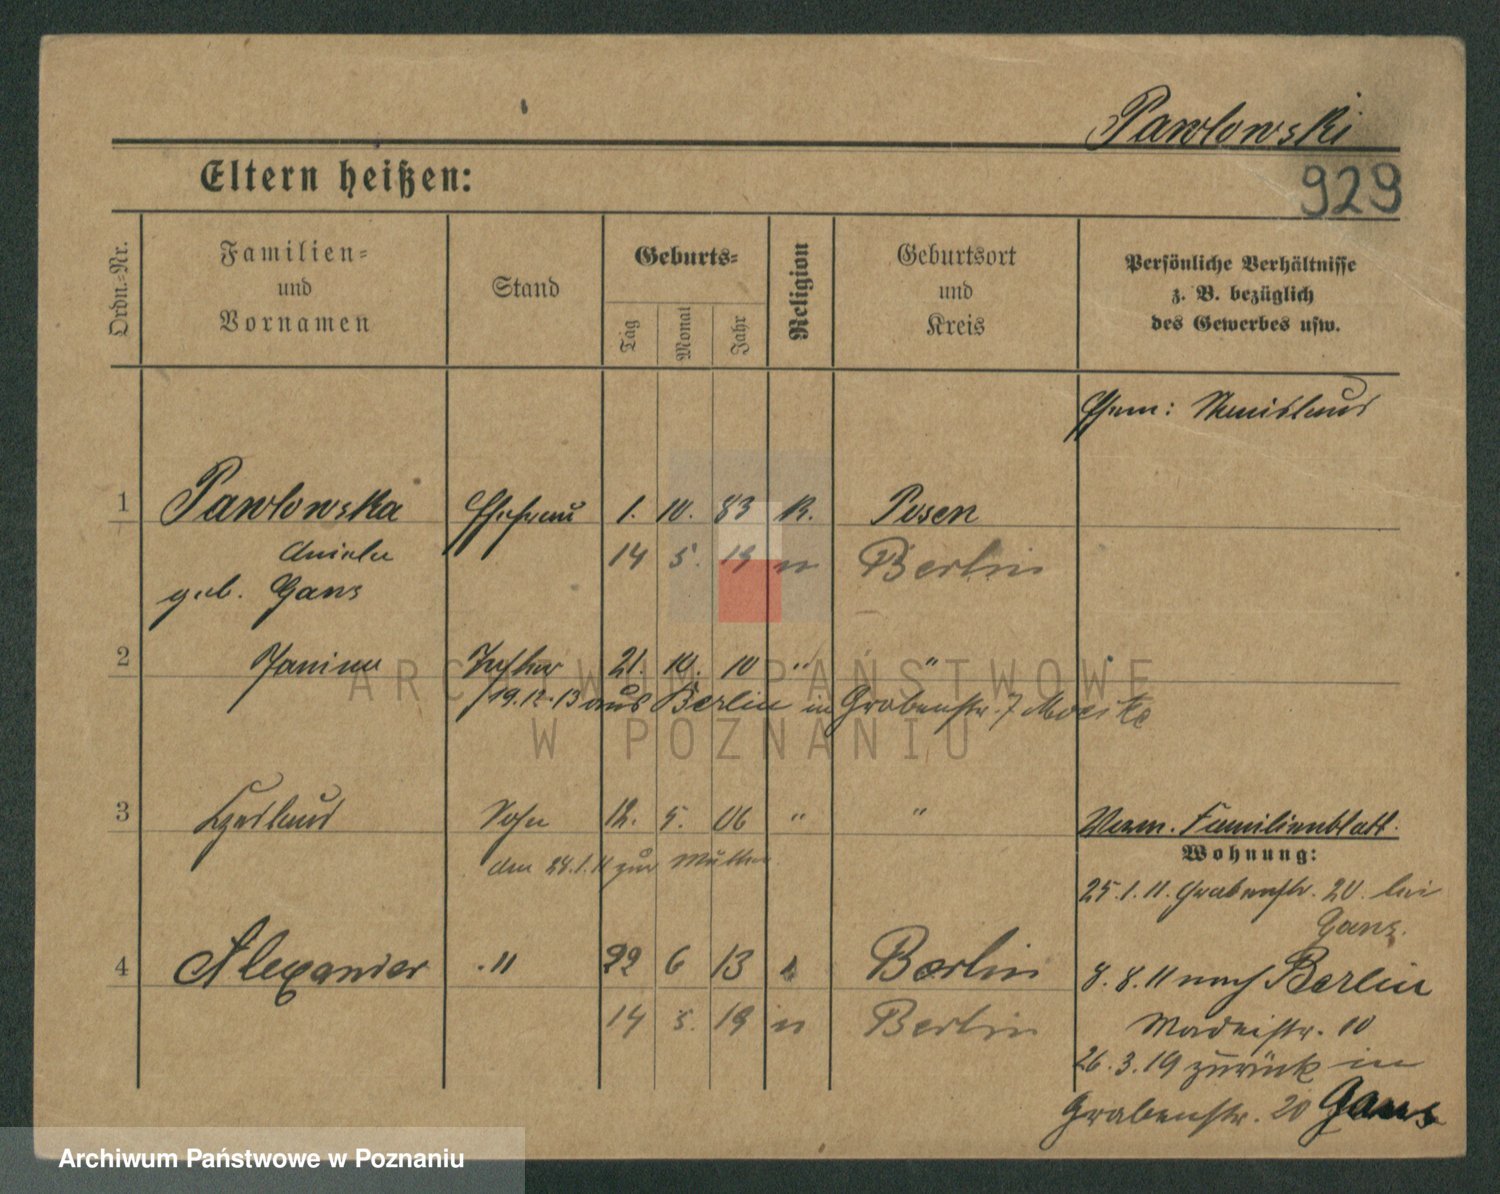 Pawlowski
929
Eltern heißen:
Ordn.-Nr.
Familien-
und
Vornamen
Stand
Geburts-
Tag
Monat
Jahr
Religion
Geburtsort
und
Kreis
Persönliche Verhältnisse
z. B. bezüglich
des Gewerbes usw.
Ehem: Stanislaus
1 Pawlowska Ehefrau 1. 10. 83 K. Posen
Aniela 14 5. 19 n Berlin
geb. Gans
2 Janina Tochter 21. 10. 10 " "
19.12.13 aus Berlin in Grabenstr. 7
3 Czeslaus Sohn 12. 5. 06 " "
den 28.1.11 zur Mutter
Verm. Familienblatt.
Wohnung:
25.1.11. Grabenstr. 20. bei
Gans.
4 Alexander " 22 6 13 k Berlin
14 5. 19 n Berlin
8.8.11 nach Berlin
10
26.3.19 zurück in
Grabenstr. 20 Gans
ARCHIWUM PAŃSTWOWE
W POZNANIU
Archiwum Państwowe w Poznaniu